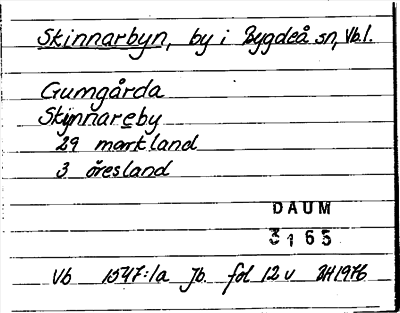 Skinnarbyn, by i Bygdeå sn, Vb l.
Gumgårda
Skinnareby
29 markland
3 öresland
DAUM
3165
Vb 1547:1a Jb. fol 12 v JH 1976